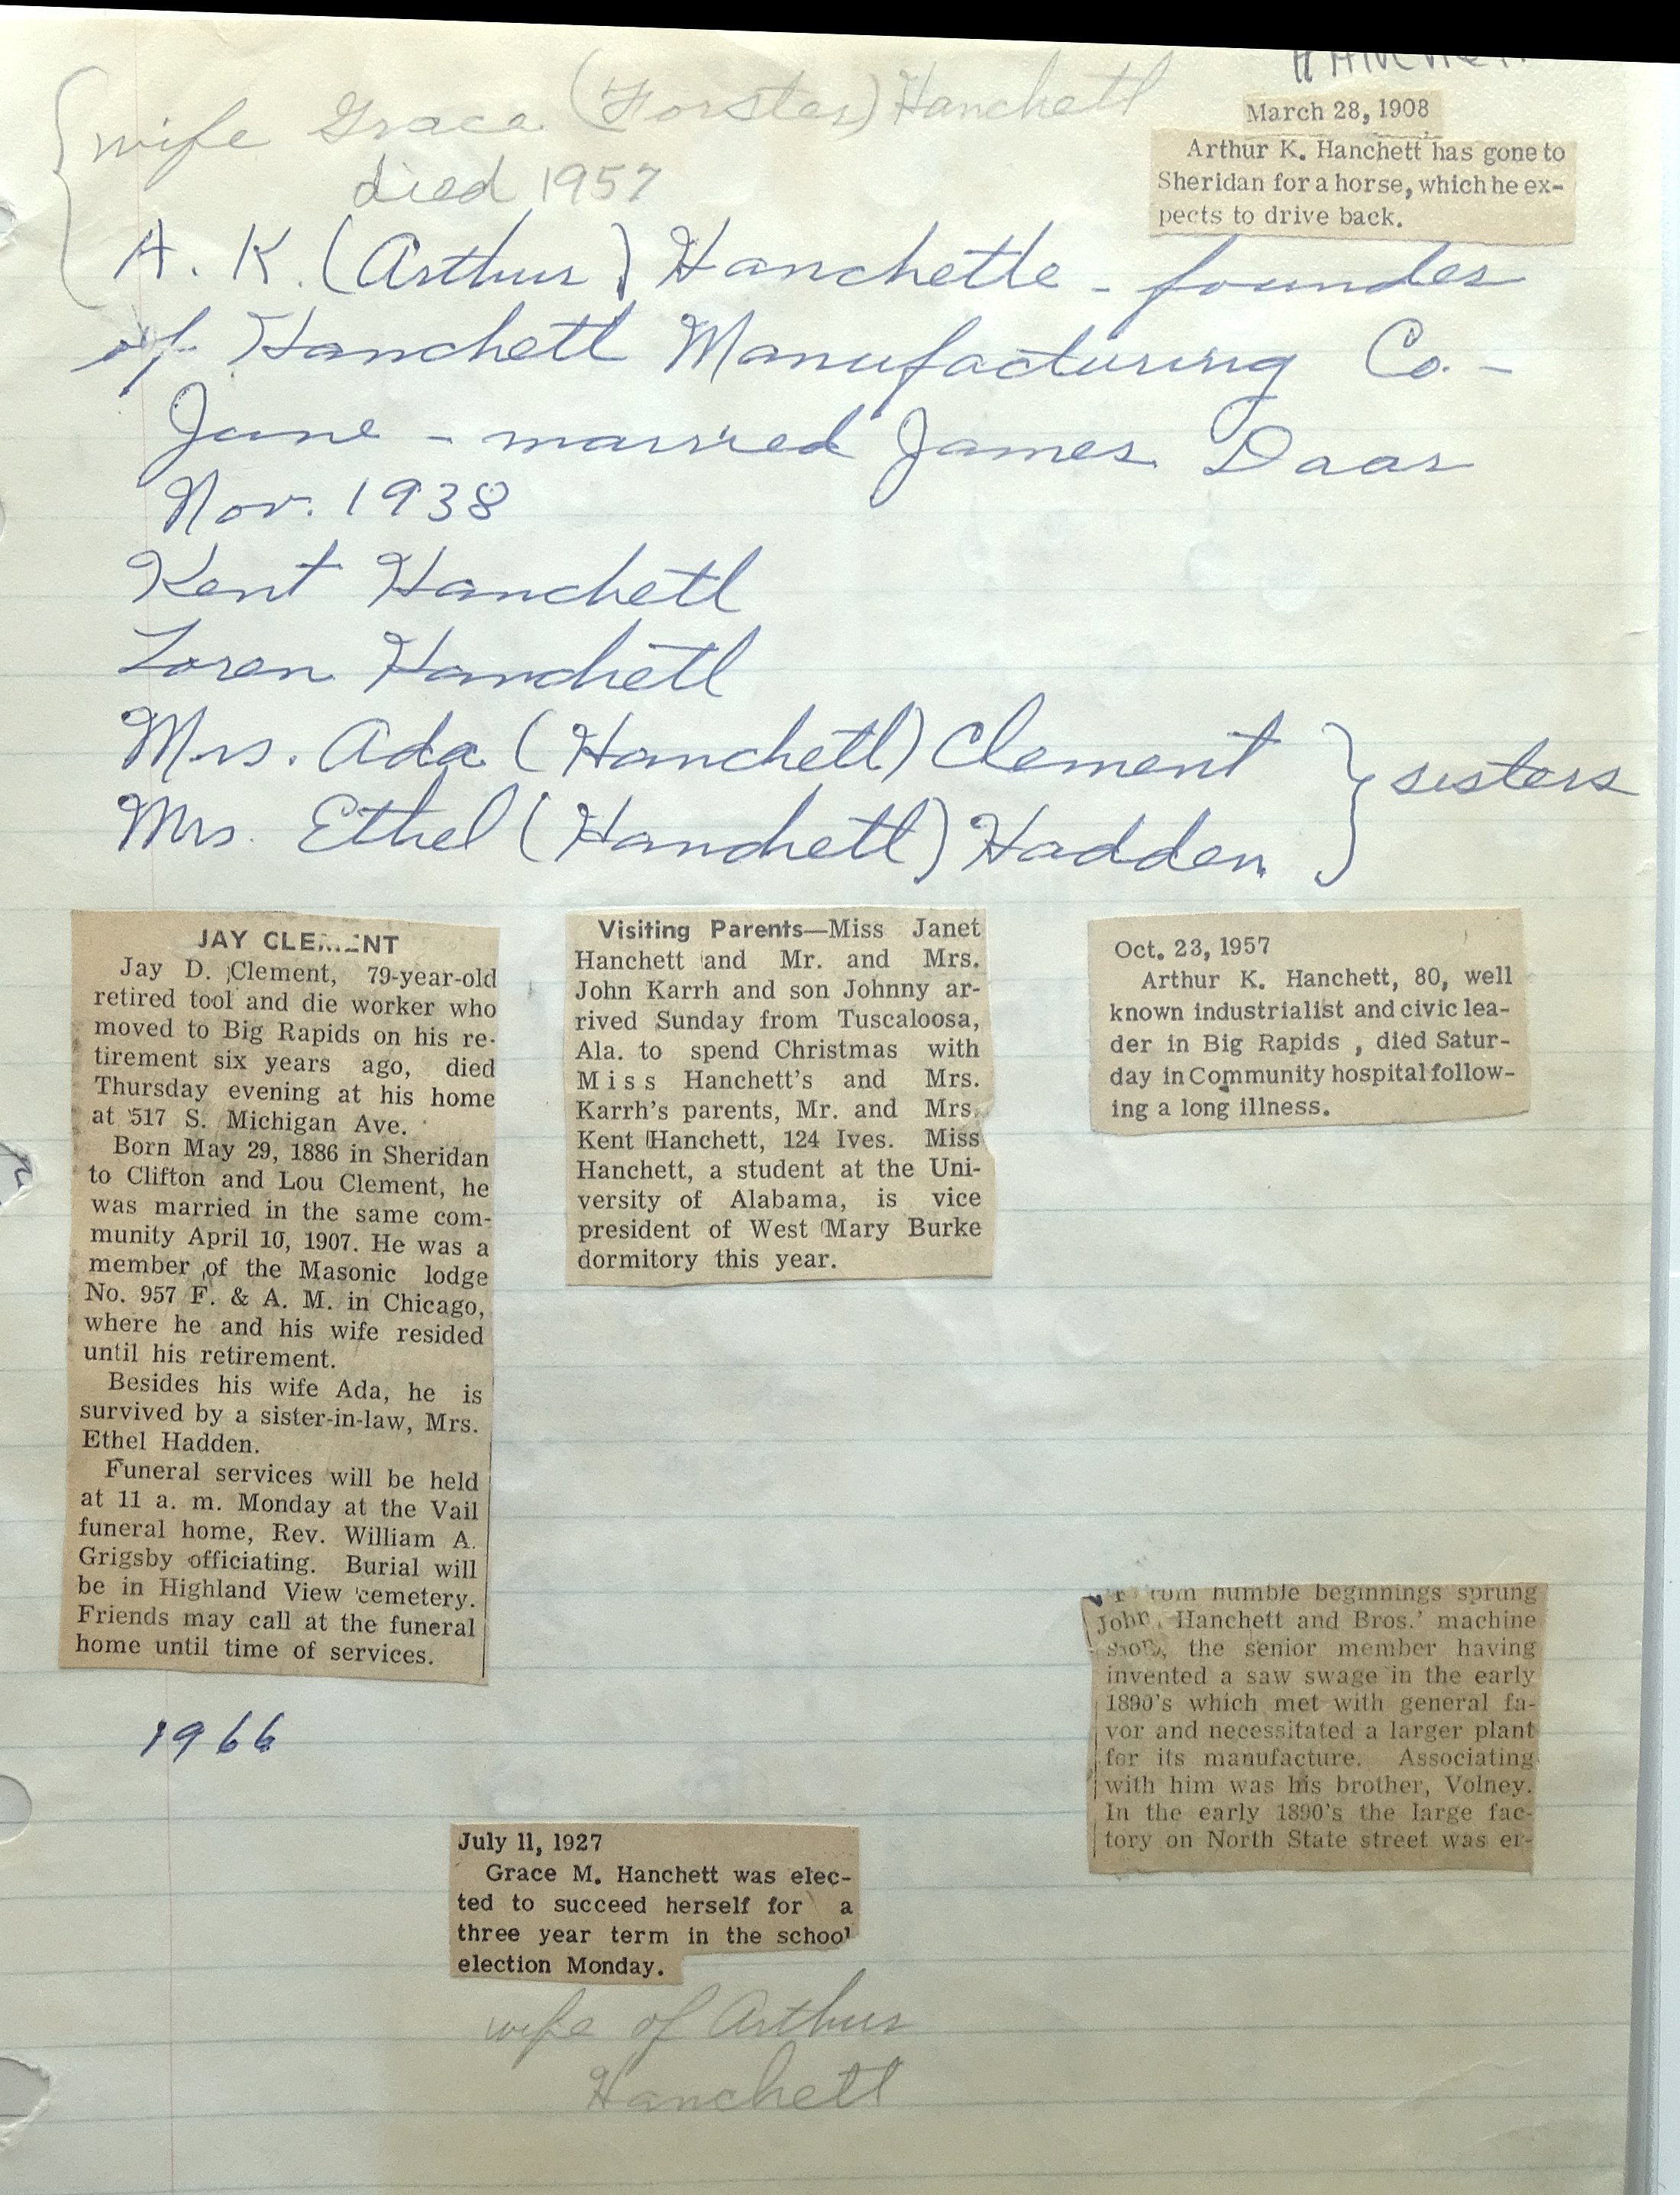 Hanchett
wife Grace (Forster) Hanchett
died 1957
March 28, 1908
Arthur K. Hanchett has gone to
Sheridan for a horse, which he ex-
pects to drive back.
A. K. (Arthur) Hanchette - founder
of Hanchett Manufacturing Co. -
June - married James Daar
Nov. 1938
Kent Hanchett
Loren Hanchett
Mrs. Ada (Hanchett) Clement
Mrs. Ethel (Hanchett) Hadden
} sisters
JAY CLEMENT
Jay D. Clement, 79-year-old
retired tool and die worker who
moved to Big Rapids on his re-
tirement six years ago, died
Thursday evening at his home
at 517 S. Michigan Ave.
Born May 29, 1886 in Sheridan
to Clifton and Lou Clement, he
was married in the same com-
munity April 10, 1907. He was a
member of the Masonic lodge
No. 957 F. & A. M. in Chicago,
where he and his wife resided
until his retirement.
Besides his wife Ada, he is
survived by a sister-in-law, Mrs.
Ethel Hadden.
Funeral services will be held
at 11 a. m. Monday at the Vail
funeral home, Rev. William A.
Grigsby officiating. Burial will
be in Highland View cemetery.
Friends may call at the funeral
home until time of services.
1966
Visiting Parents—Miss Janet
Hanchett and Mr. and Mrs.
John Karrh and son Johnny ar-
rived Sunday from Tuscaloosa,
Ala. to spend Christmas with
Miss Hanchett's and Mrs.
Karrh's parents, Mr. and Mrs.
Kent Hanchett, 124 Ives. Miss
Hanchett, a student at the Uni-
versity of Alabama, is vice
president of West Mary Burke
dormitory this year.
Oct. 23, 1957
Arthur K. Hanchett, 80, well
known industrialist and civic lea-
der in Big Rapids , died Satur-
day in Community hospital follow-
ing a long illness.
From humble beginnings sprung
John Hanchett and Bros.' machine
shop, the senior member having
invented a saw swage in the early
1890's which met with general fa-
vor and necessitated a larger plant
for its manufacture. Associating
with him was his brother, Volney.
In the early 1890's the large fac-
tory on North State street was er-
July 11, 1927
Grace M. Hanchett was elec-
ted to succeed herself for a
three year term in the school
election Monday.
wife of Arthur
Hanchett